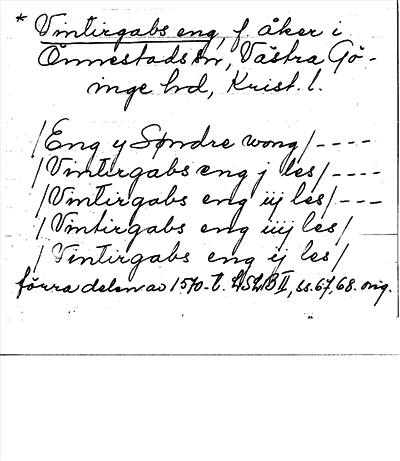 * Vintirgabs eng, f. åker i
Önnestads sn, Västra Gö-
inge hd, Krist. l.
/Eng y Søndre wong/----
/Vintirgabs eng j les/----
/Vintirgabs eng iij les/---
/Vintirgabs eng iiij les/
/Vintirgabs eng ij les/
förra delen av 1570-t. LSLB II, ss. 67, 68. orig.